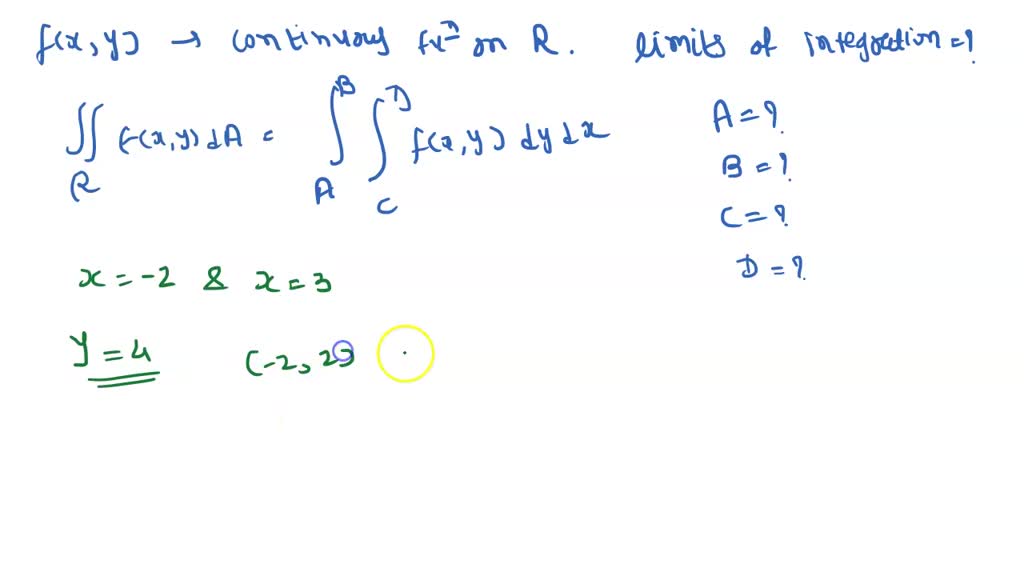 f(x,y) → continuous fxⁿ on R. limits of integration=?
∬_R f(x,y) dA = ∫_A^B ∫_C^D f(x,y) dy dx
A=?
B=?
C=?
D=?
x=-2 & x=3
y=4 (-2,2)